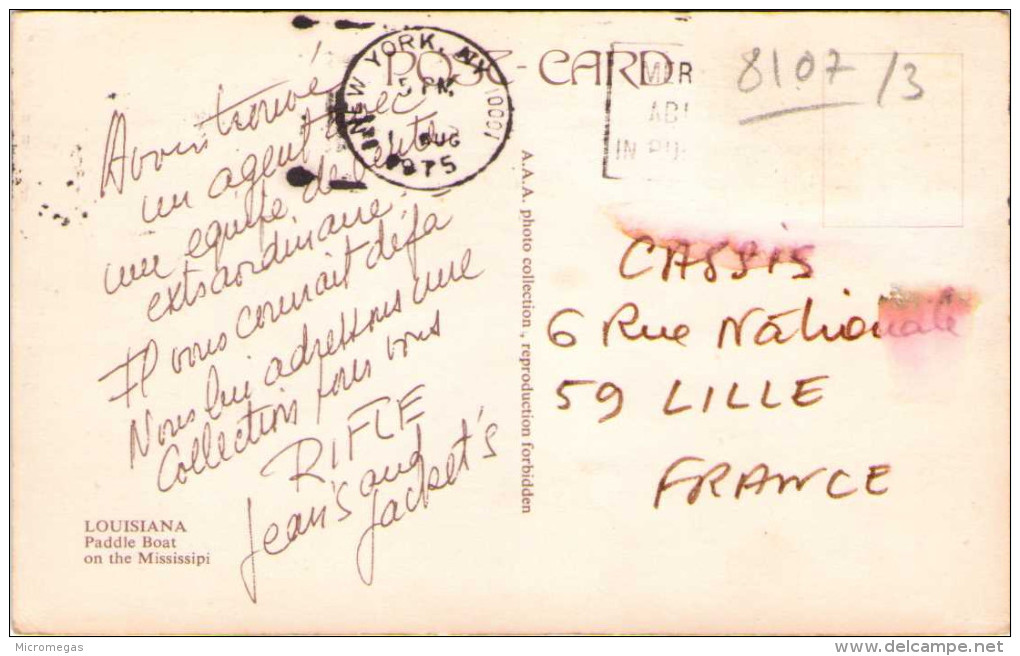 POST-CARD
NEW YORK, NY 10001
PM
1 AUG
1975
MER
IN PU
8107/3
Avons trouvé
un agent avec
une equipe de vente
extraordinaire.
Il vous connait déja
Nous lui adressons une
Collection pour vous
RIFLE
Jean's and
Jacket's
LOUISIANA
Paddle Boat
on the Mississipi
A.A.A. photo collection, reproduction forbidden
CASSIS
6 Rue Nationale
59 LILLE
FRANCE
Micromegas
delcampe.net